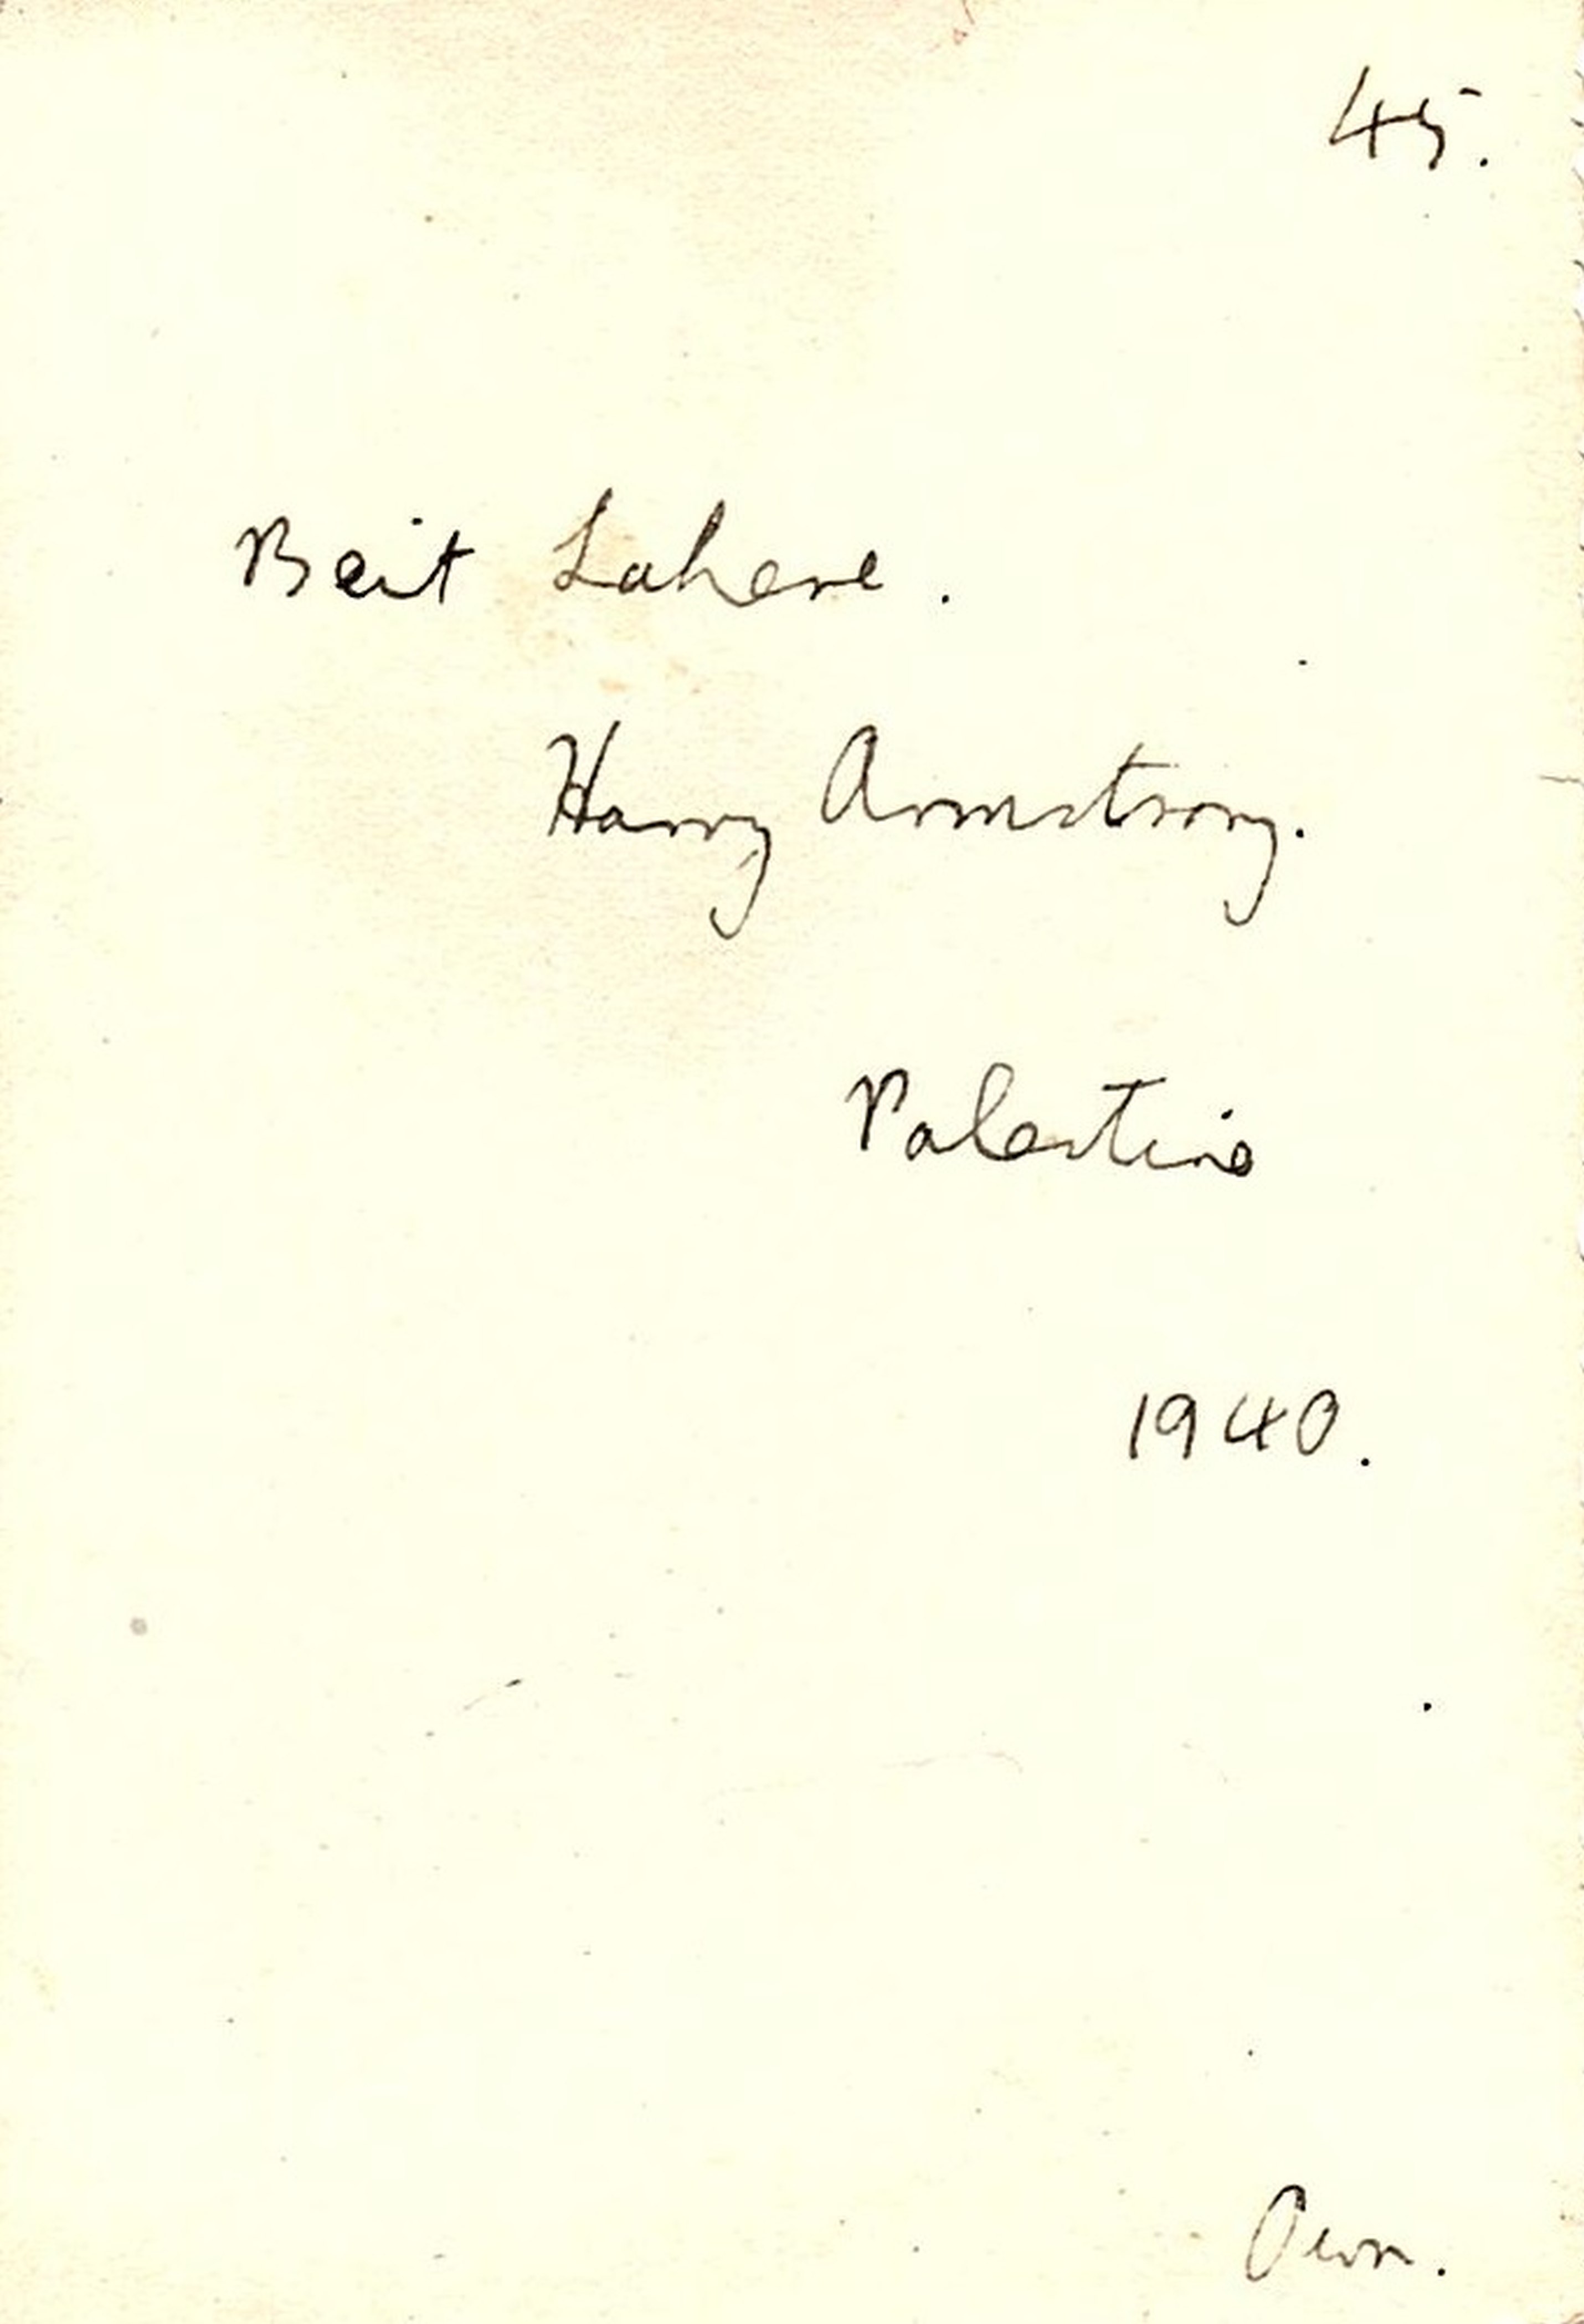 45.
Beit Lahere.
Harry Armstrong.
Palestine
1940.
Own.